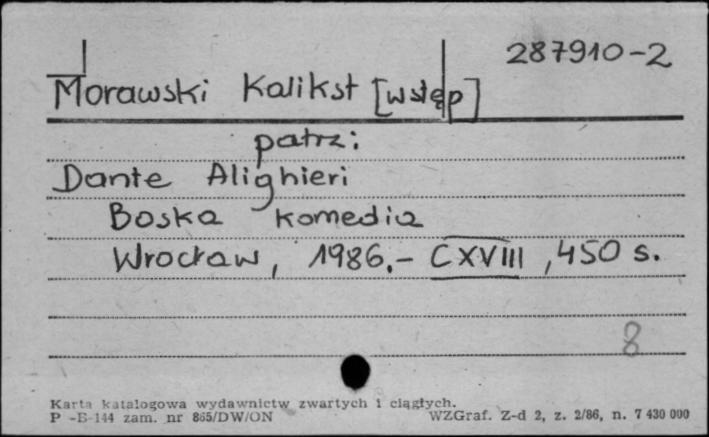 287910-2
Morawski Kalikst [wstęp]
patrz:
Dante Alighieri
Boska Komedia
Wrocław, 1986.- CXVIII, 450 s.
8
Karta katalogowa wydawnictw zwartych i ciągłych.
P -B-144 zam. nr 865/DW/ON
WZGraf. Z-d 2, z. 2/86, n. 7 430 000